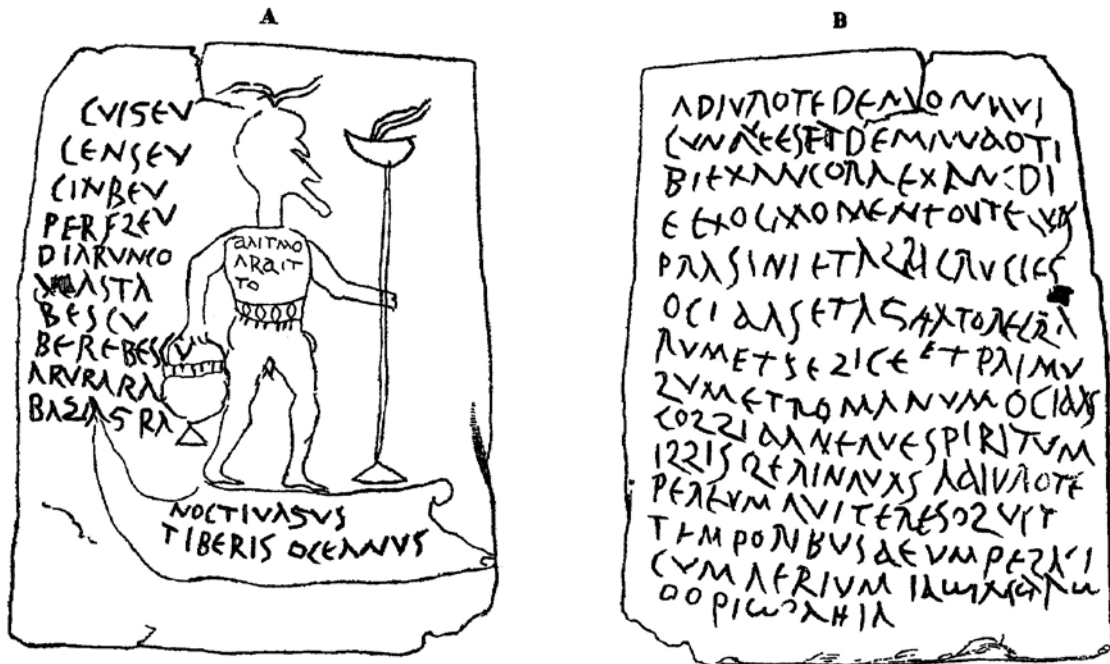 A
CVIGEV
CENSEV
CINBEV
PERFLEV
DIARVNCO
DEASTA
BESCV
BEREBESCV
ARVRARA
BAGAGRA
ANTMO
ARAIT
TO
NOCTIVAGVS
TIBERIS OCEANVS
B
ADIVRO TE DEMON QVI
CVNQVE ES ET DEMANDO TI
BI EX ANC ORA EX ANC DI
E EX OC MOMENTO VT EQVOS
PRASINI ET ALBI CRVCIES
OCIDAS ET AGITATORE CLA
RVM ET FELICE ET PRIMV
LVM ET ROMANVM OCIDAS
COLLIDA NEQVE SPIRITVM
ILLIS LERINQVAS ADIVRO TE
PER EVM QVI TE RESOLVIT
TEMPORIBVS DEVM PELAGI
CVM AERIVM